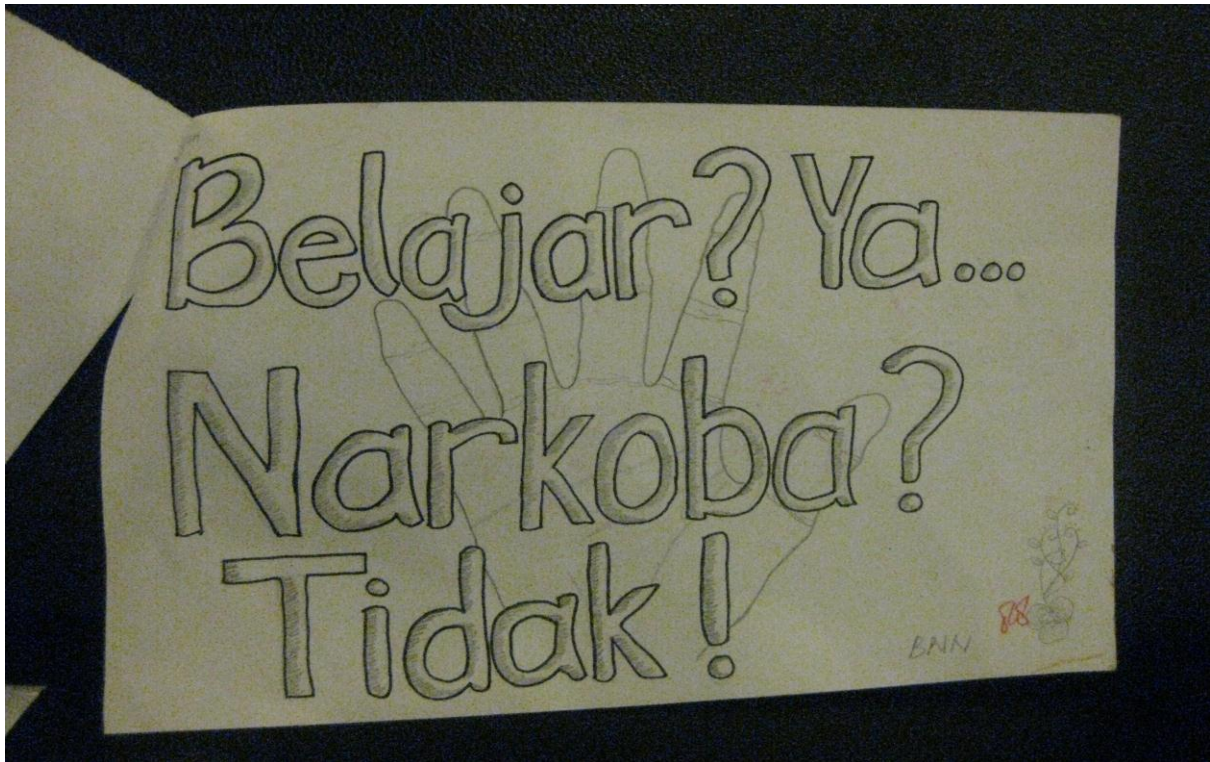 Belajar? Ya...
Narkoba?
Tidak!
BNN